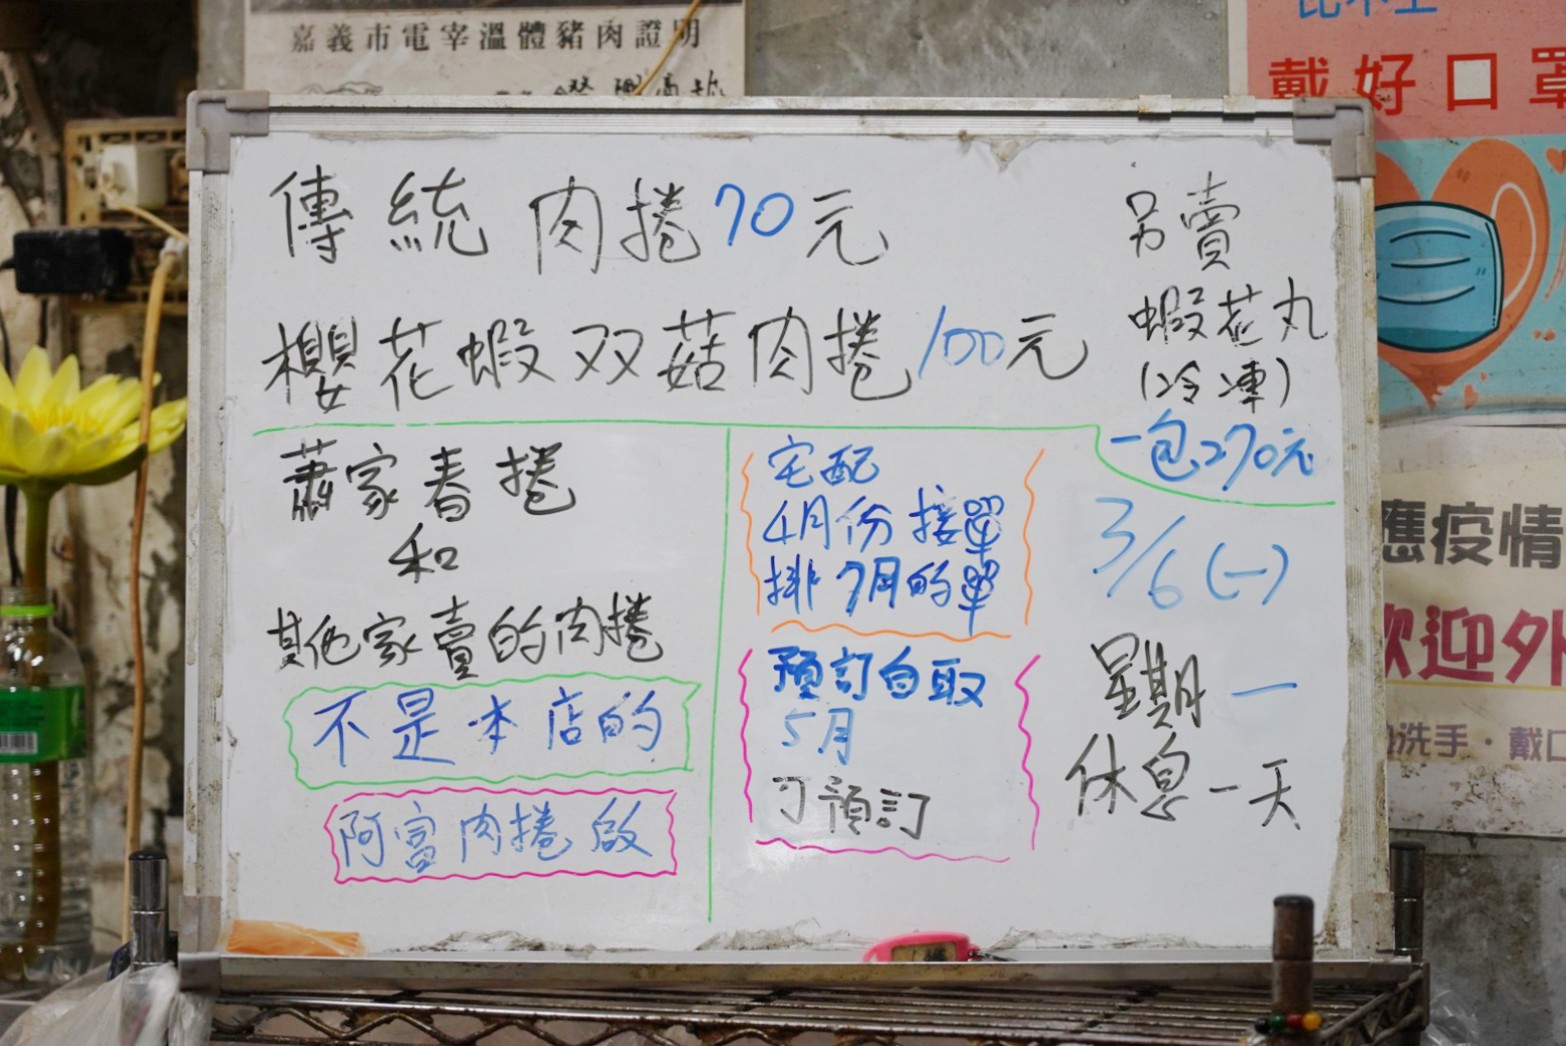 嘉義市電宰溫體豬肉證明
戴好口罩
傳統肉捲70元
櫻花蝦双菇肉捲100元
另賣
蝦花丸
(冷凍)
一包270元
蕭家春捲
和
其他家賣的肉捲
不是本店的
阿富肉捲 啟
宅配
4月份接單
排7月的單
預訂自取
5月
可預訂
3/6(一)
星期一
休息一天
應疫情
歡迎外
洗手・戴口